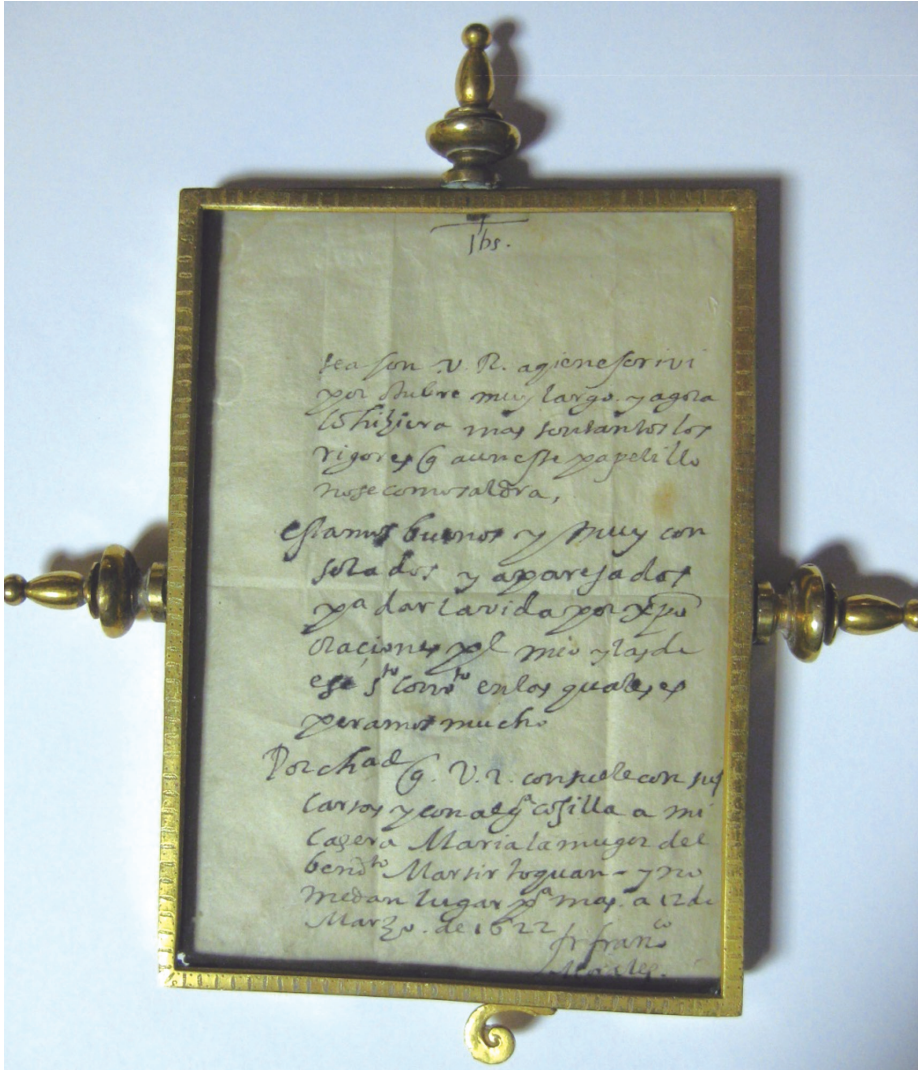 Jhs.
sea con V. R. a qien escrivi
por otubre muy largo. y agora
lo hiziera mas son tantos los
rigores q aun este papelillo
no se como saldra,
estamos buenos y muy con
solados y aparejados
pa dar la vida por xpo
oraciones pol mio y las de
ese sto convto en los quales es
peramos mucho
Por chad q. V. r. consuele con sus
cartas y con algª cosilla a mi
casera Maria la muger del
bendto Martir Joguan - y no
me dan lugar pª mas. a 12 de
Março. de 1622
fr franco
Morales.